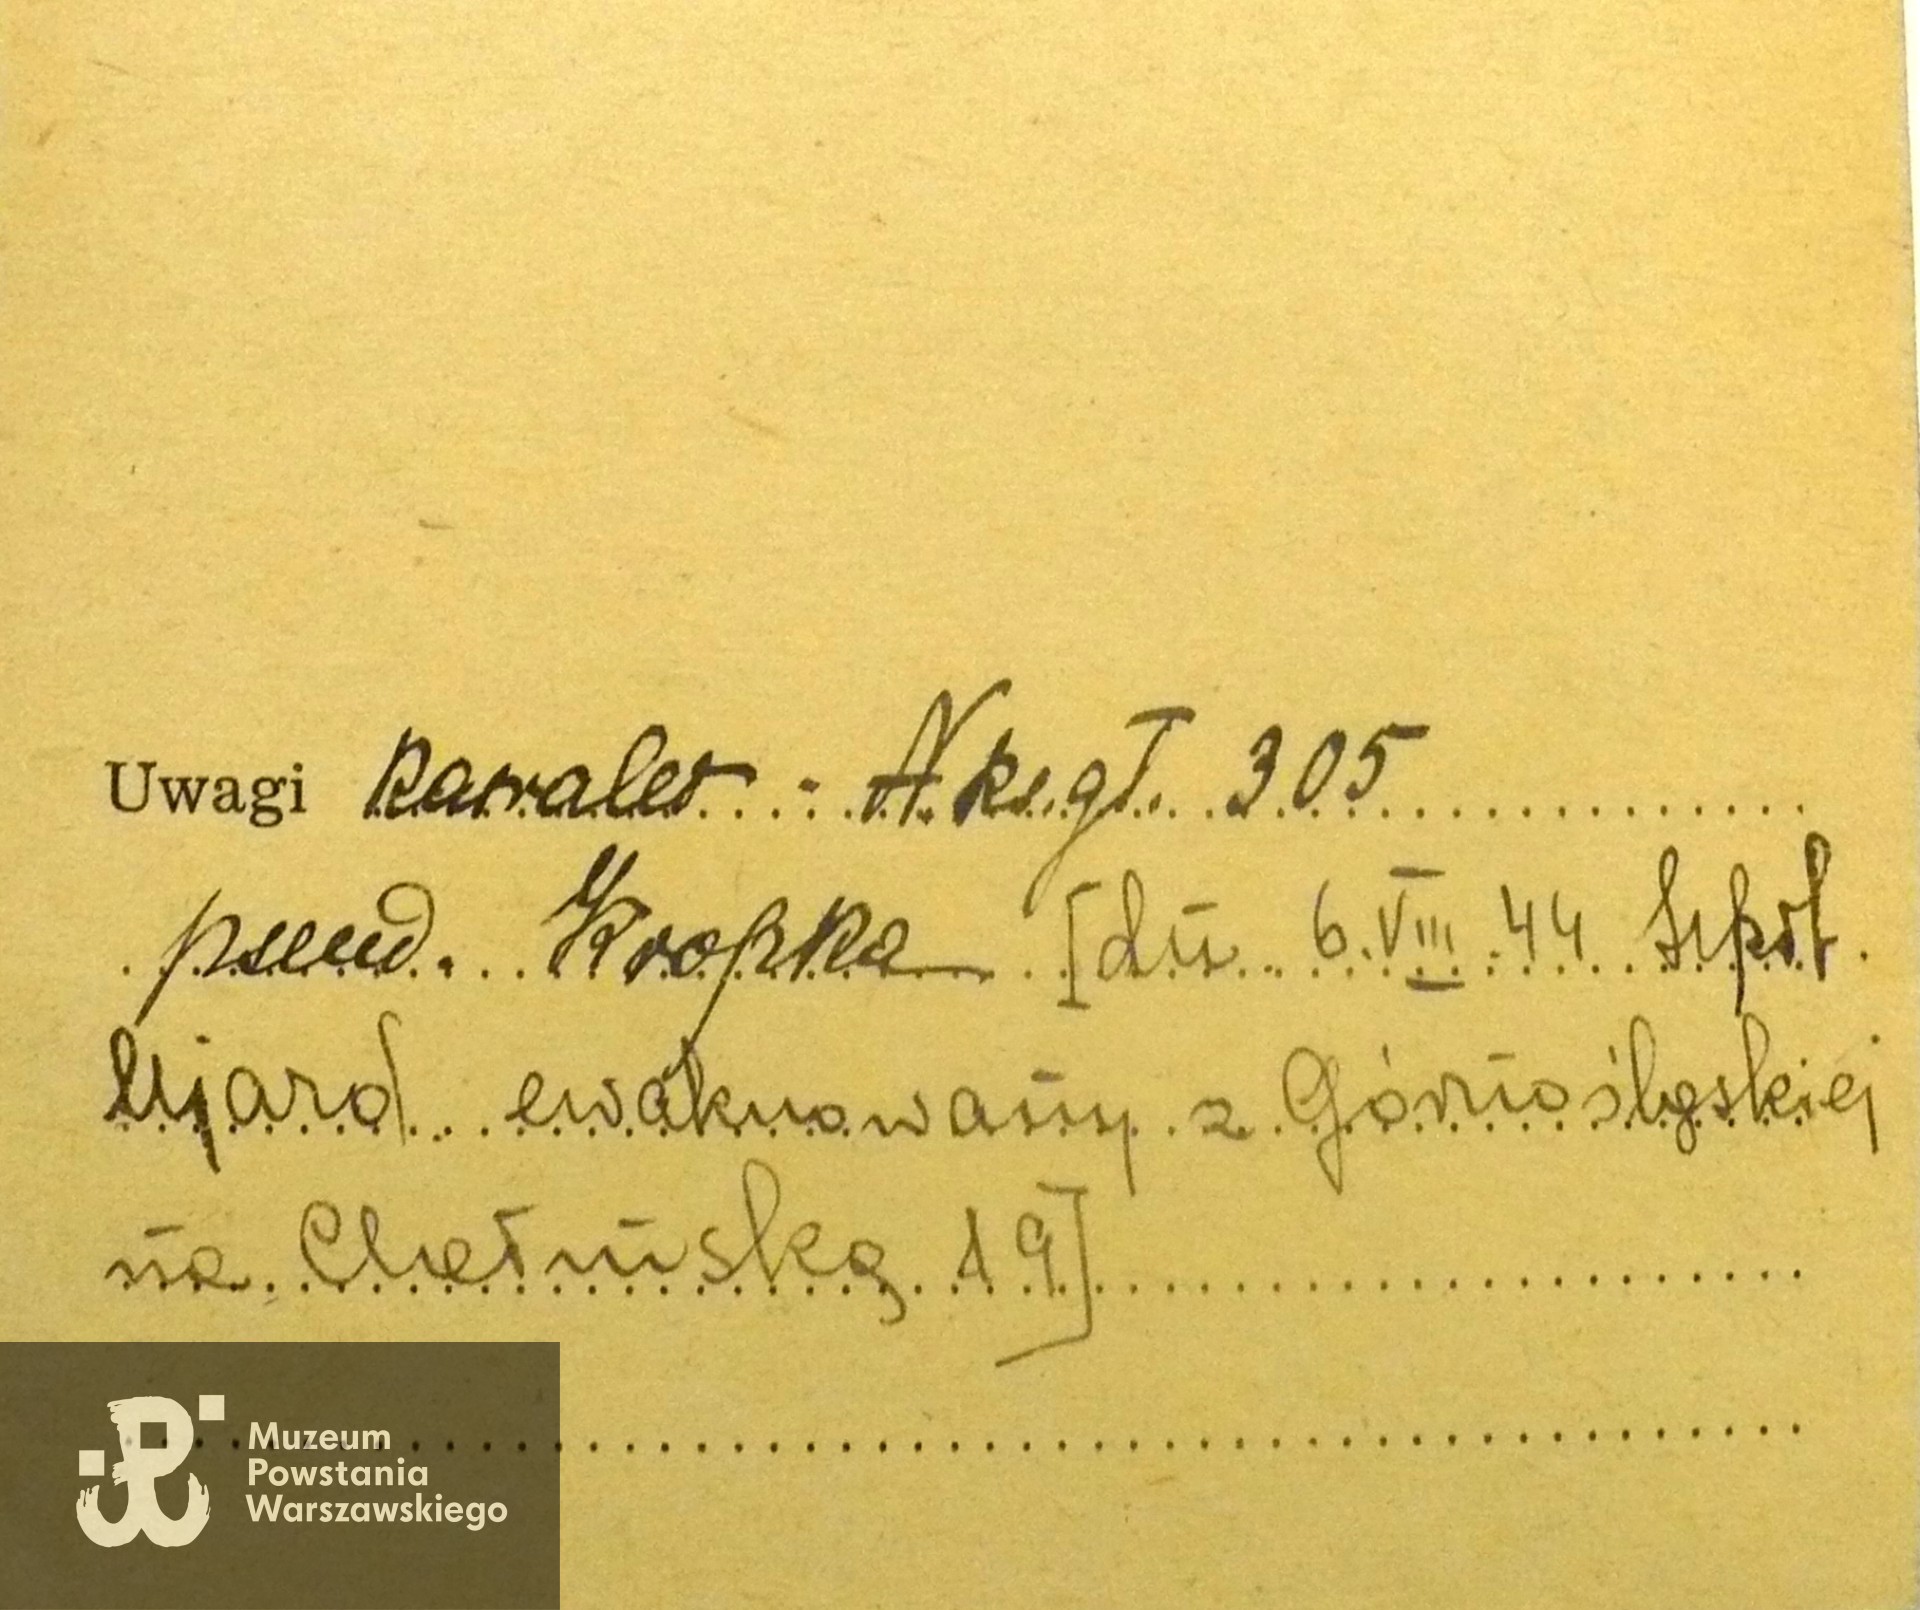 Uwagi kawaler - N. ks. gł. 305
pseud. Kropka [dn. 6.VIII.44 Szpit.
Ujazd. ewakuowany z Górnośląskiej
na Chełmską 19]
Muzeum
Powstania
Warszawskiego